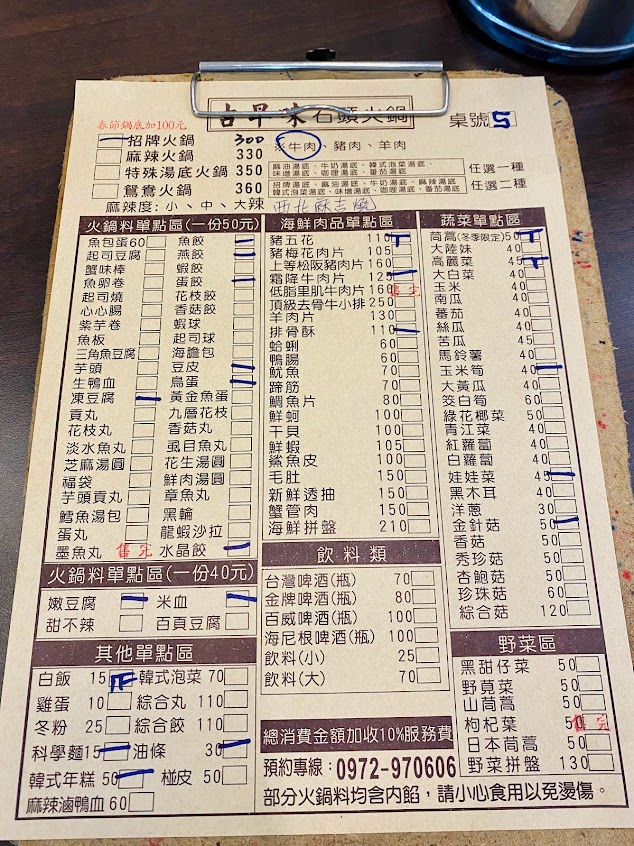 古早味石頭火鍋
桌號 5
春節鍋底加100元
招牌火鍋 300 ※牛肉、豬肉、羊肉
麻辣火鍋 330
特殊湯底火鍋 350 麻油湯底、牛奶湯底、韓式泡菜湯底、味增湯底、咖哩湯底、番茄湯底 任選一種
鴛鴦火鍋 360 招牌湯底、麻油湯底、牛奶湯底、麻辣湯底、韓式泡菜湯底、味增湯底、咖哩湯底、番茄湯底 任選二種
麻辣度:小、中、大辣
火鍋料單點區(一份50元)
魚包蛋60 魚餃
起司豆腐 燕餃
蟹味棒 蝦餃
魚卵卷 蛋餃
起司燒 花枝餃
心心腸 香菇餃
紫芋卷 蝦球
魚板 起司球
三角魚豆腐 海膽包
芋頭 豆皮
生鴨血 鳥蛋
凍豆腐 黃金魚蛋
貢丸 九層花枝
花枝丸 香菇丸
淡水魚丸 虱目魚丸
芝麻湯圓 花生湯圓
福袋 鮮肉湯圓
芋頭貢丸 章魚丸
鱈魚湯包 黑輪
蛋丸 龍蝦沙拉
墨魚丸 售完 水晶餃
火鍋料單點區(一份40元)
嫩豆腐 米血
甜不辣 百頁豆腐
其他單點區
白飯 15 韓式泡菜 70
雞蛋 10 綜合丸 110
冬粉 25 綜合餃 110
科學麵 15 油條 30
韓式年糕 50 椪皮 50
麻辣滷鴨血 60
海鮮肉品單點區
豬五花 110
豬梅花肉片 105
上等松阪豬肉片 160
霜降牛肉片 125
低脂里肌牛肉片 160 售完
頂級去骨牛小排 250
羊肉片 130
排骨酥 110
蛤蜊 60
鴨腸 60
魷魚 70
蹄筋 70
鯛魚片 80
鮮蚵 100
干貝 100
鮮蝦 105
鯊魚皮 100
毛肚 150
新鮮透抽 150
蟹管肉 150
海鮮拼盤 210
飲料類
台灣啤酒(瓶) 70
金牌啤酒(瓶) 80
百威啤酒(瓶) 100
海尼根啤酒(瓶) 100
飲料(小) 25
飲料(大) 70
總消費金額加收10%服務費
預約專線:0972-970606
部分火鍋料均含內餡,請小心食用以免燙傷。
蔬菜單點區
茼蒿(冬季限定) 50
大陸妹 40
高麗菜 45
大白菜 40
玉米 40
南瓜 40
蕃茄 40
絲瓜 40
苦瓜 45
馬鈴薯 40
玉米筍 40
大黃瓜 40
筊白筍 60
綠花椰菜 50
青江菜 40
紅蘿蔔 40
白蘿蔔 40
娃娃菜 45
黑木耳 40
洋蔥 30
金針菇 50
香菇 50
秀珍菇 50
杏鮑菇 50
珍珠菇 60
綜合菇 120
野菜區
黑甜仔菜 50
野莧菜 50
山茼蒿 50
枸杞葉 50 售完
日本茼蒿 50
野菜拼盤 130